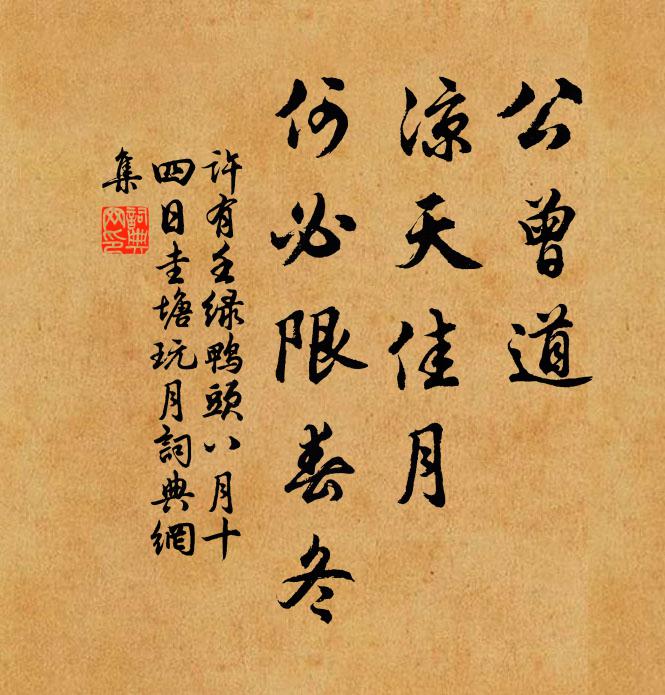 公曾道
凉天佳月
何必限春冬
許有壬绿鴨頭八月十
四日圭塘玩月詞典網
集
詞典
网印